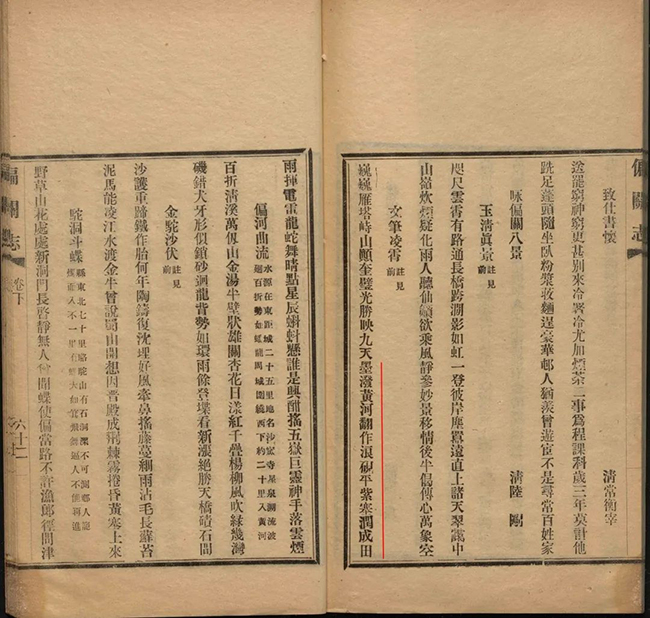 偏關志
致仕書懷 清常衡宰
送罷窮神窮更甚別來冷署冷尤加煙茶二事爲程課科歲三年莫計他
跣足蓬頭隨坐臥粉漿麵逞豪華鄰人猶羨曾遊宦不是尋常百姓家
咏偏關八景 淸陸剛
玉淸眞景 註見前
咫尺雲霄有路通長橋跨澗影如虹一登彼岸塵囂遠直上諸天翠靄中
山炊煙疑化雨人聽仙欲乘風靜參妙景移情後半偈傳心萬象空
文筆凌霄 註見前
巍巍雁塔峙山巔奎壁光勝映九天墨潑黃河翻作浪硯平紫塞潤成田
雨揮電雷龍蛇舞晴點星辰蝌蚪懸誰是興酣搖五嶽巨靈神手落雲煙
偏河曲流 水源在東距城二十五里地名沙寺星泉湖流波
迴百折勢如虬龍周城圍繞西下約二十里入黃河
百折淸溪萬仞山金湯半壁狀雄關杏花日漾紅千疊楊柳風吹綠幾灣
磯錯犬牙形似鎖砂迴龍背勢如環雨餘登堞看新漲絕勝天橋磧石間
金駝沙伏 註見前
沙護重蹄鐵作胎何年陶鑄復沈埋好風牽鼻搖藤蔓細雨沾毛長蘚苔
泥馬能凌江水渡金牛曾說蜀山開想因香殿成荆棘霧捲昏黃塞上來
駝洞斗蝶 縣東北七十里駱駝山有石洞深不可測鄰人
野草山花處處新洞門長啓靜無人曾聞蝶使偏當路不許漁郎徑問津
偏關志 卷下 六十二